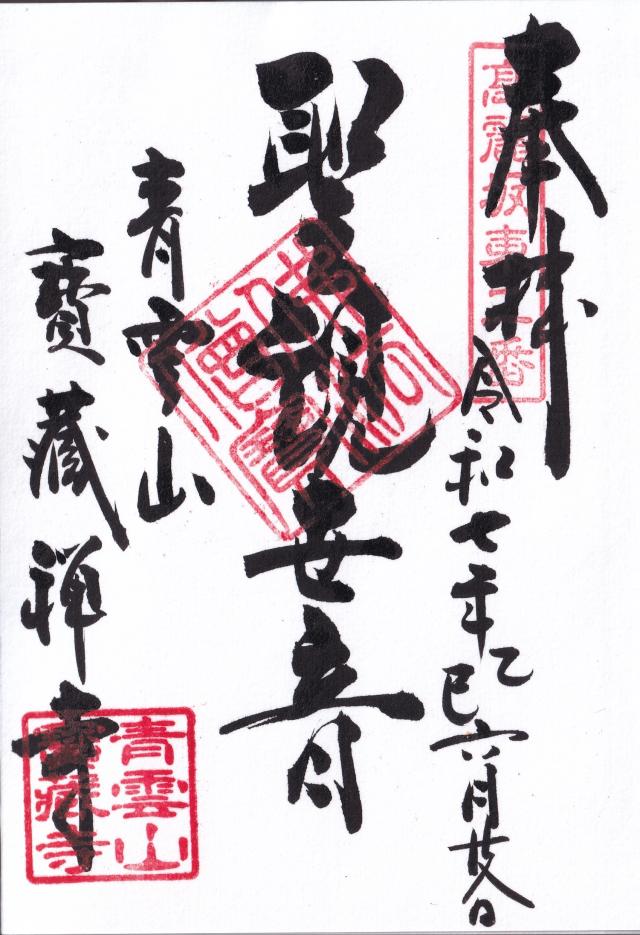 奉拝
令和七年乙巳六月廿八日
高麗坂東
番
聖観世音
青雲山
寶藏禅寺
青雲山
寶藏寺